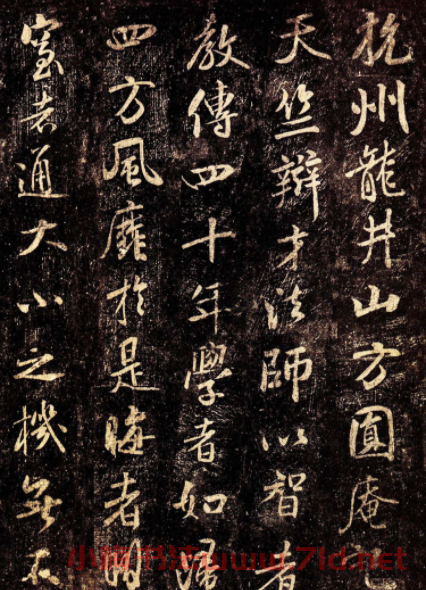 杭州龍井山方圓庵記
天竺辯才法師以智者
教傳四十年學者如歸
四方風靡於是晦者明
窒者通大小之機無不
www.7ld.net